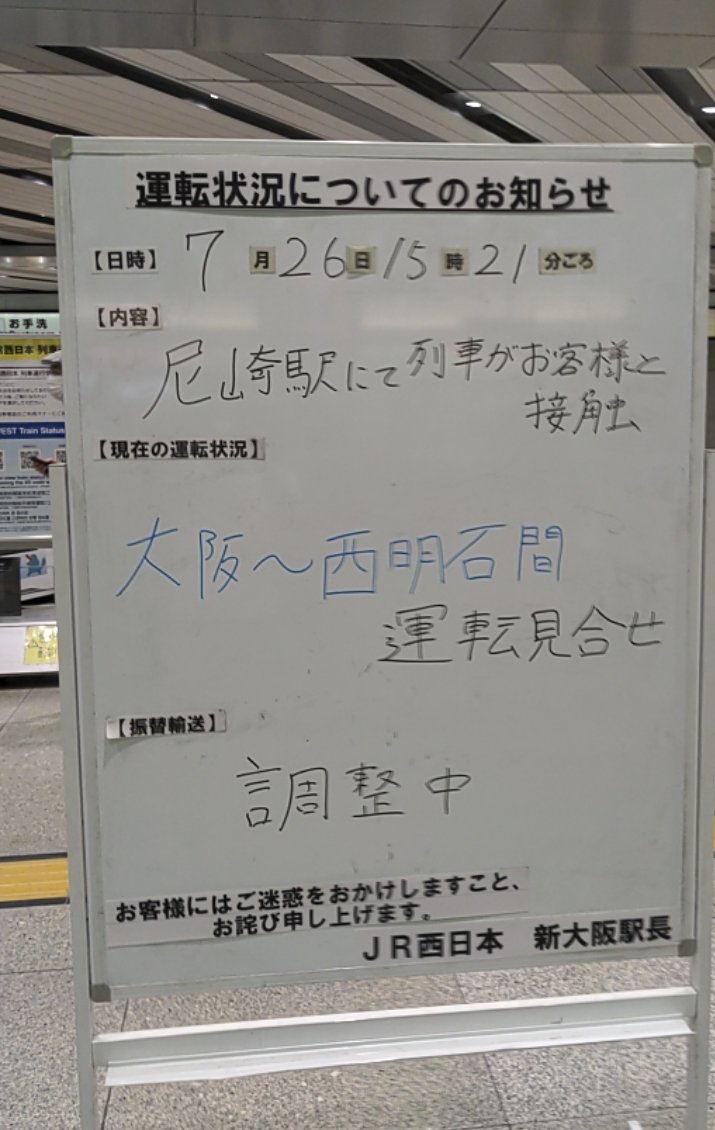 運転状況についてのお知らせ
【日時】 7月26日15時21分ごろ
【内容】
尼崎駅にて列車がお客様と
接触
【現在の運転状況】
大阪～西明石間
運転見合せ
【振替輸送】
調整中
お客様にはご迷惑をおかけしますこと、
お詫び申し上げます。
JR西日本 新大阪駅長
お手洗